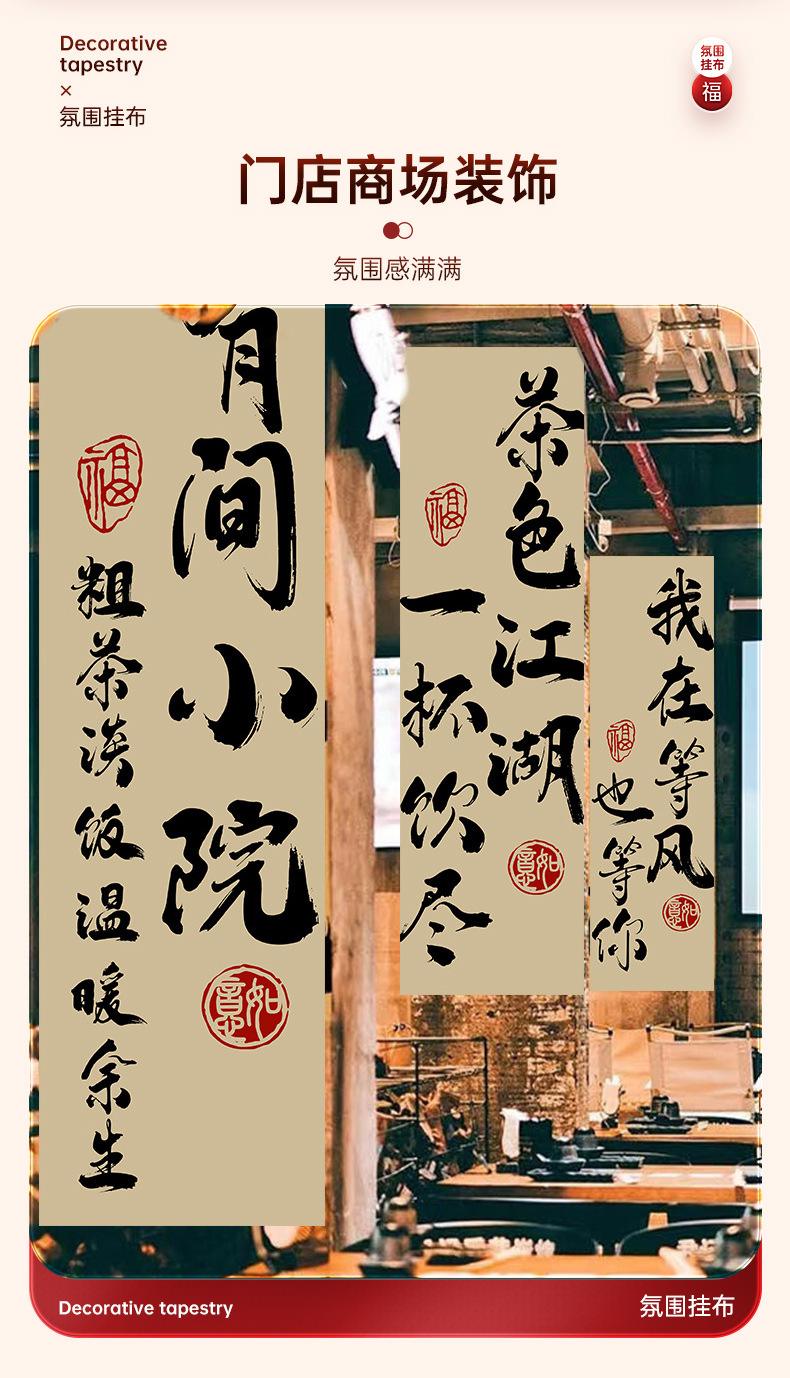 Decorative
tapestry
×
氛围挂布
氛围
挂布
福
门店商场装饰
氛围感满满
有间小院
福
粗茶淡饭温暖余生
如意
茶色江湖
福
一杯饮尽
如意
我在等风
福
也等你
如意
Decorative tapestry
氛围挂布